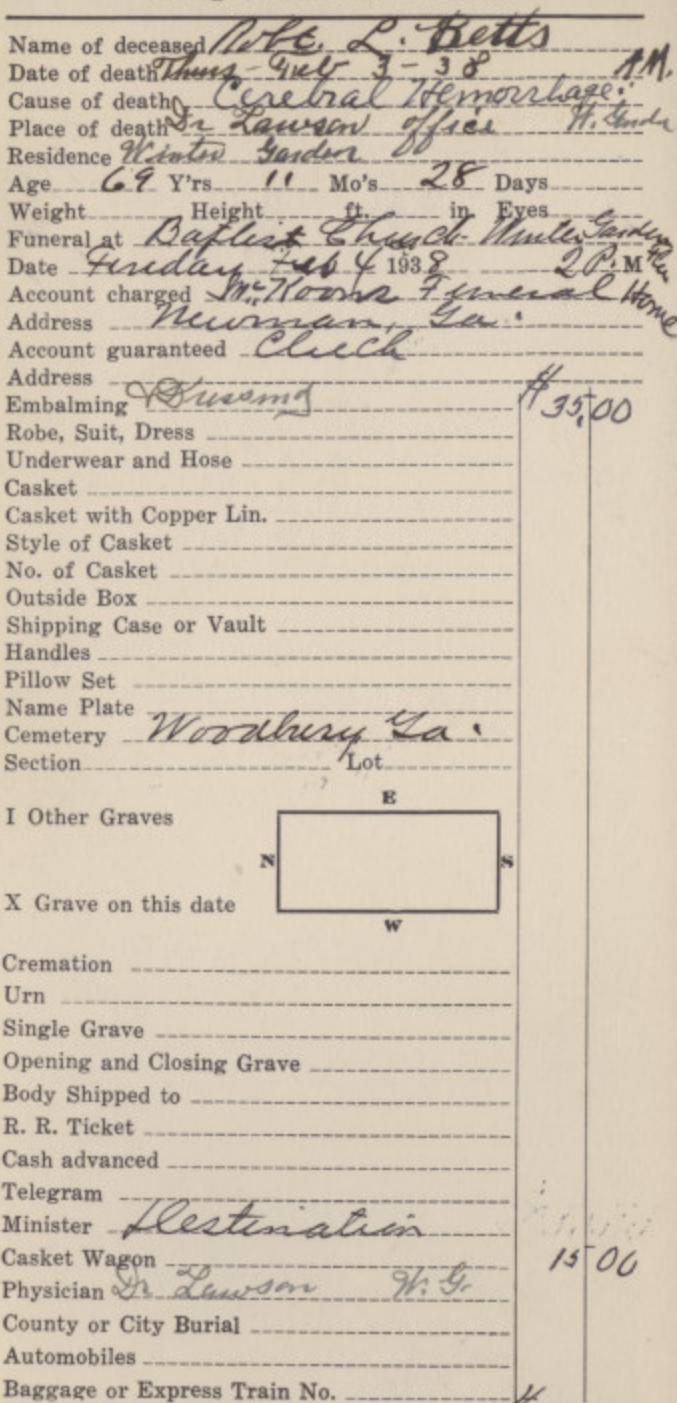 Name of deceased Robt. L. Betts
Date of death Thurs - Feb 3 - 38 A.M.
Cause of death Cerebral Hemorrhage.
Place of death Dr Lawson office W. Garden
Residence Winter Garden
Age 69 Y'rs 11 Mo's 28 Days
Weight Height ft. in Eyes
Funeral at Baptist Church Winter Garden Fla
Date Friday Feb 4 1938 2 P. M
Account charged McKoons Funeral Home
Address Newnan, Ga.
Account guaranteed Check
Address
Embalming & Dressing $35,00
Robe, Suit, Dress
Underwear and Hose
Casket
Casket with Copper Lin.
Style of Casket
No. of Casket
Outside Box
Shipping Case or Vault
Handles
Pillow Set
Name Plate
Cemetery Woodbury Ga.
Section Lot
E
I Other Graves
N S
X Grave on this date
W
Cremation
Urn
Single Grave
Opening and Closing Grave
Body Shipped to
R. R. Ticket
Cash advanced
Telegram
Minister Destination
Casket Wagon 15 00
Physician Dr Lawson W. G.
County or City Burial
Automobiles
Baggage or Express Train No.